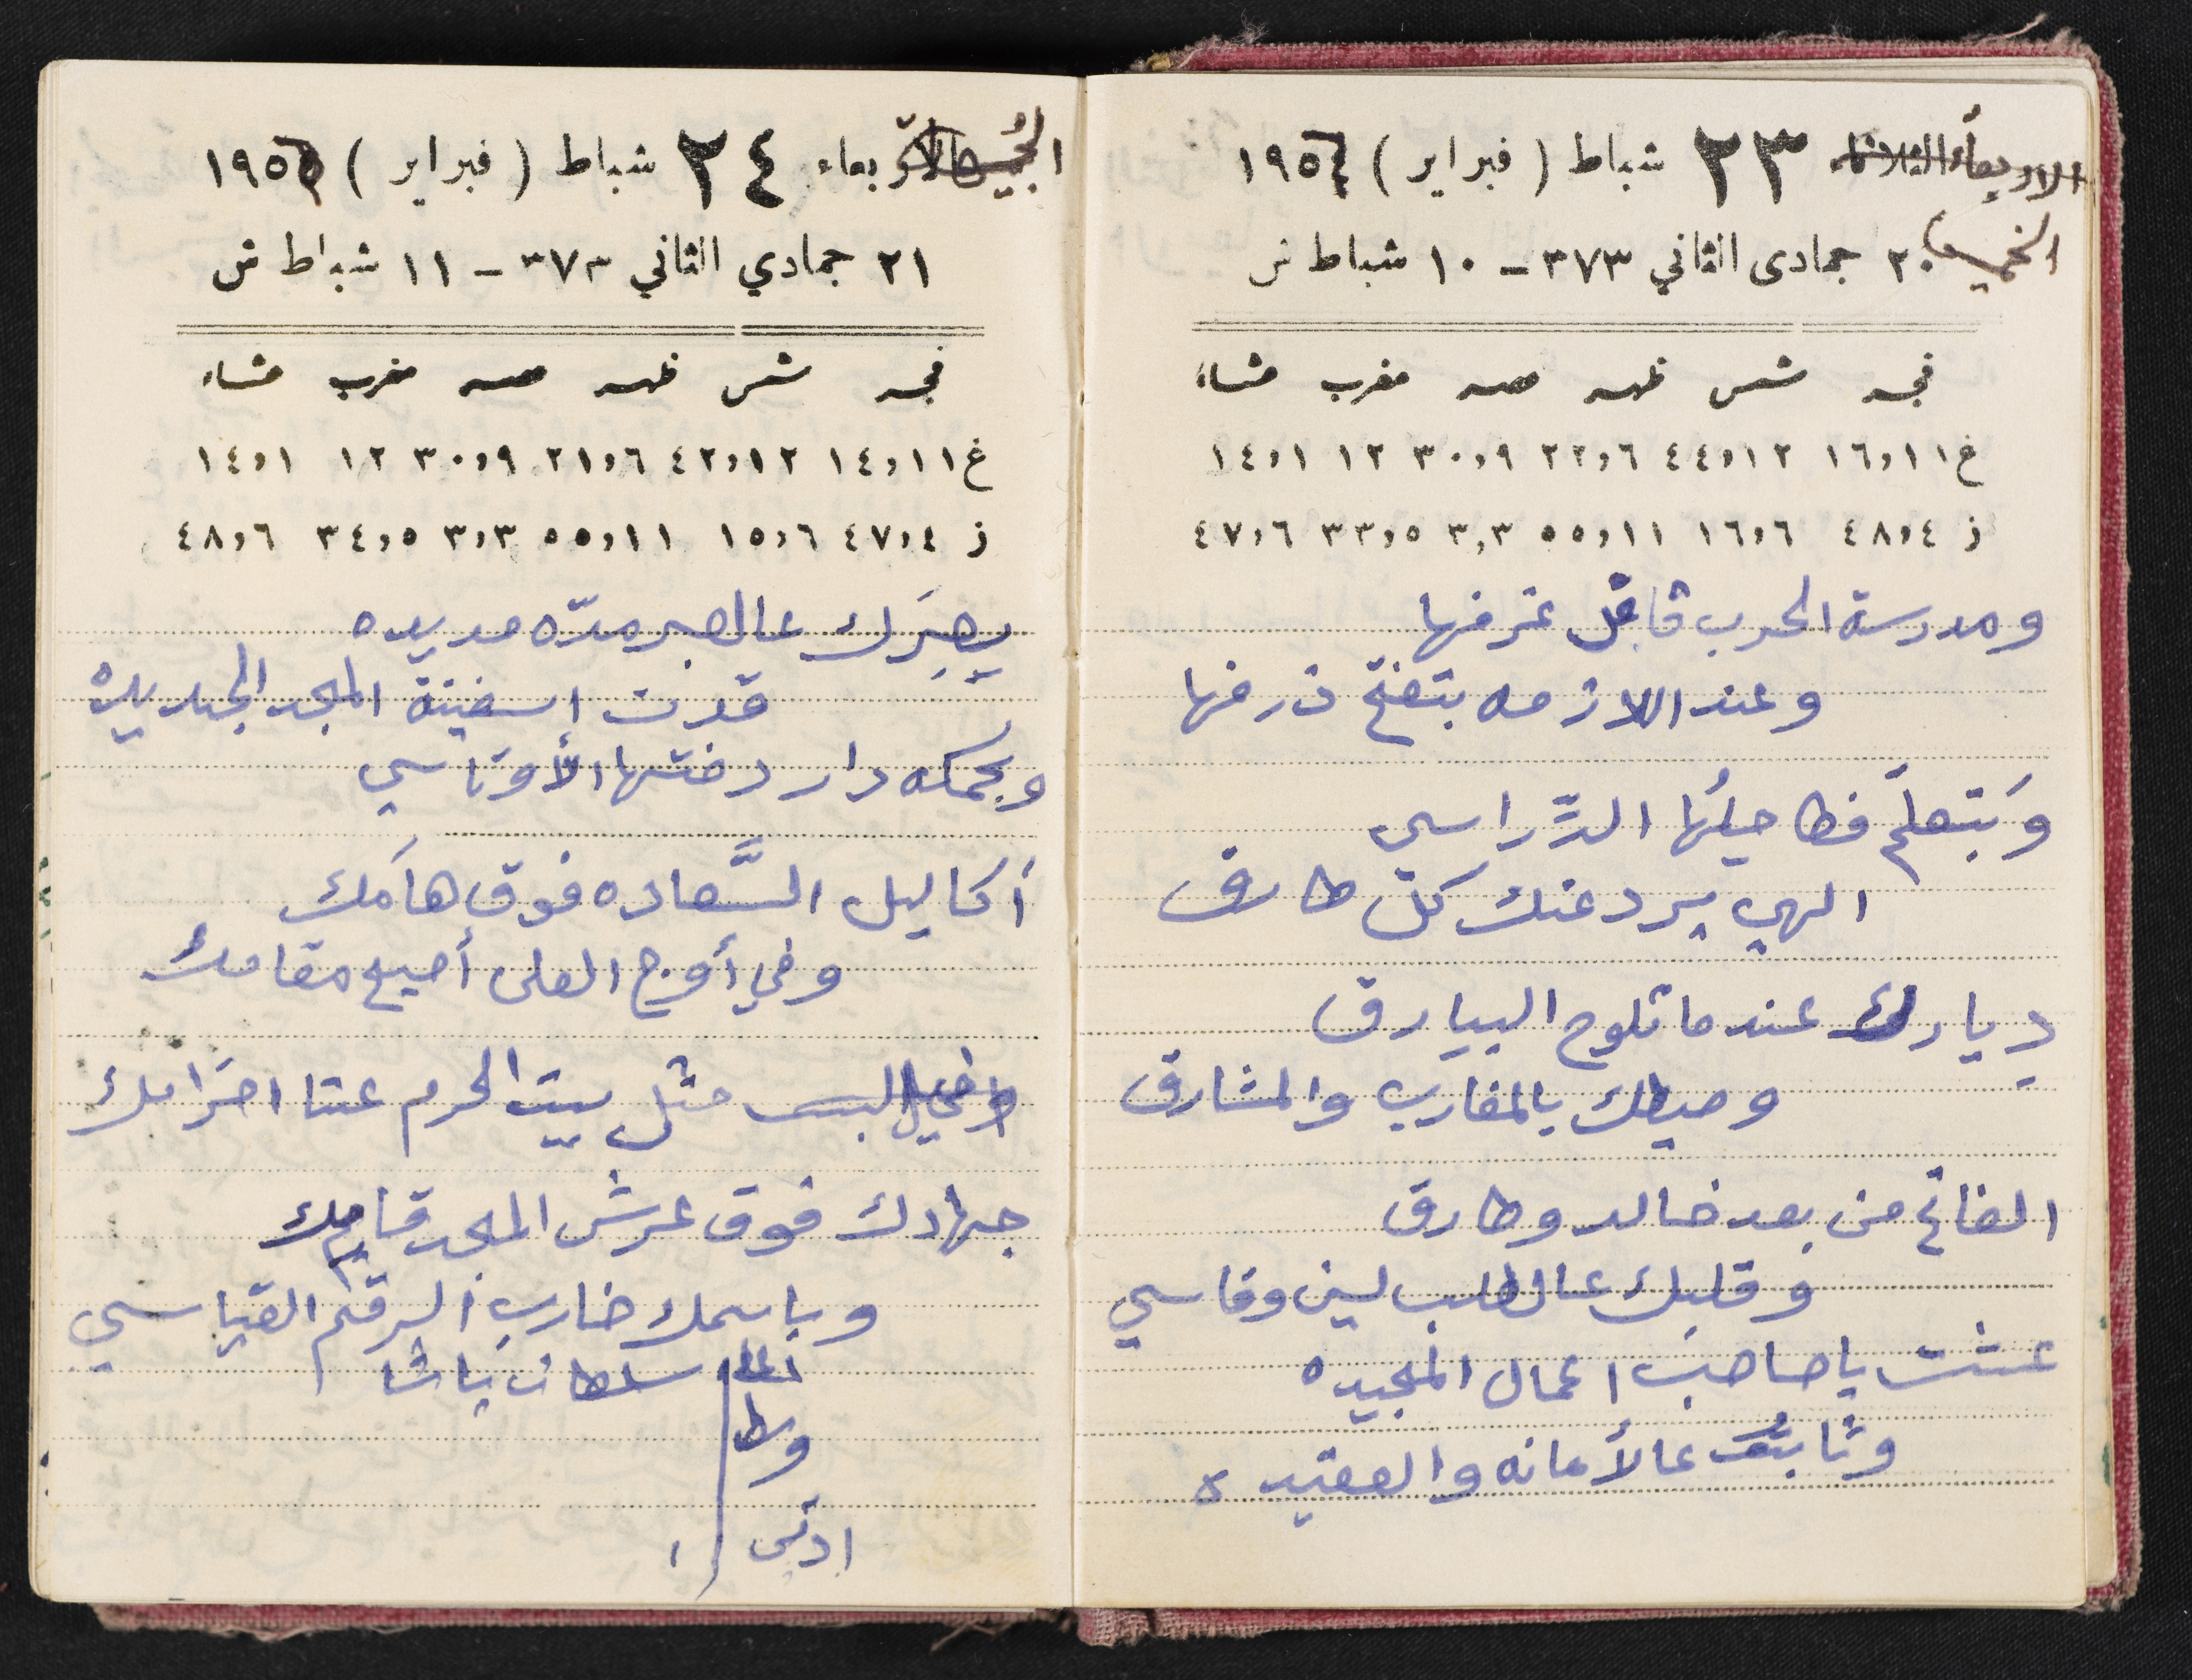 الاربعاء الثلاثاء ٢٣ شباط ( فبراير ) ١٩٥٦
الخميس ٢٠ جمادى الثاني ٣٧٣ – ١٠ شباط ش
فجر شمس ظهر عصر مغرب عشاء
غ ١١,١٦ ١٢,٤٤ ٦,٢٢ ٩,٣٠ ١٢ ١,١٤
ز ٤,٤٨ ٦,١٦ ١١,٥٥ ٣,٣ ٥,٣٣ ٦,٤٧
ومدرسة الحرب قافل غرفها
وعند اللازمه بتفتح ذرفها
وَبتعلّم فطاحيلُها الدَّراسي
الهي يرد عنك كلّ طارق
ديارك عندما تلوح البيارق
وصيطك بالمغارب والمشارق
الفاتح من بعد خالد وطارق
وقلبك عالطلب لين وقاسي
عشت يا صاحب اعمال المجيده
وثابت عالأمانه والعقيده
الخميس الأربعاء ٢٤ شباط ( فبراير ) ١٩٥
٢١ جمادي الثاني ٣٧٣ – ١١ شباط ش
فجر شمس ظهر عصر مغرب عشاء
غ ١١,١٤ ١٢,٤٢ ٦,٢١ ٩,٣٠ ١٢ ١,١٤
ز ٤,٤٧ ٦,١٥ ١١,٥٥ ٣,٣ ٥,٣٤ ٦,٤٨
يصبرك عالصبر مدّه مديده
قدت اسفينة المجد الجديده
وبحمكه دار دفتها الأوتاسي
أكاليل السَّعاده فوق هامَك
وفي أوج العلى أصبح مقامك
مثل بيت الحرم عنا احترامك
جهادك فوق عرش المجد قامك
وباسمك ضارب الرقم القياسي
سلطان باشا
وطا
ادنى